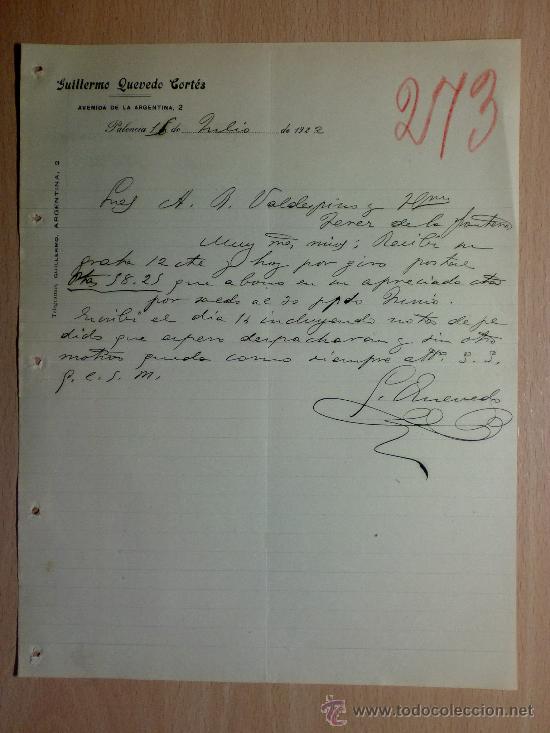 Guillermo Quevedo Cortés
AVENIDA DE LA ARGENTINA, 2
Palencia 16 de Julio de 1922
273
Telegramas GUILLERMO, ARGENTINA, 2
Sres A. R. Valdespino y Hnos
Jerez de la Frontera
Muy ms, mios: Recibi su
grata 12 cte y hoy por giro postal
Ptas 58.25 que abono en su apreciada cta
por saldo al 30 ppdo Junio.
Escribi el dia 14 incluyendo notas de pe
didos que espero despacharan y sin otro
motivo queda como siempre atto. S. S.
q. e. s. m.
G. Quevedo
TODOCOLECCION
www.todocoleccion.net